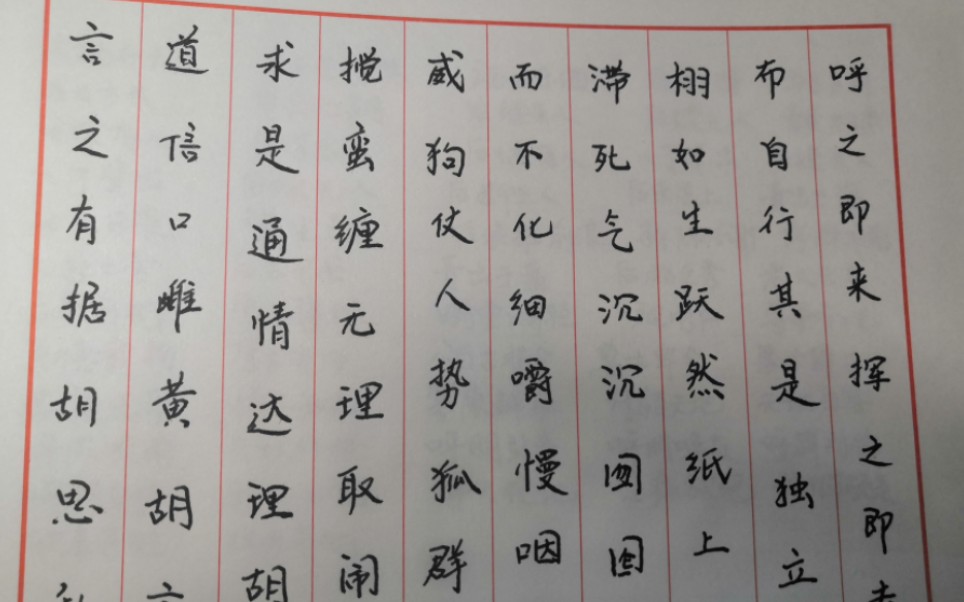 呼之即来挥之即去
布自行其是独立
栩如生跃然纸上
滞死气沉沉囫囵
而不化细嚼慢咽
威狗仗人势狐群
搅蛮缠无理取闹
求是通情达理胡
道信口雌黄胡
言之有据胡思